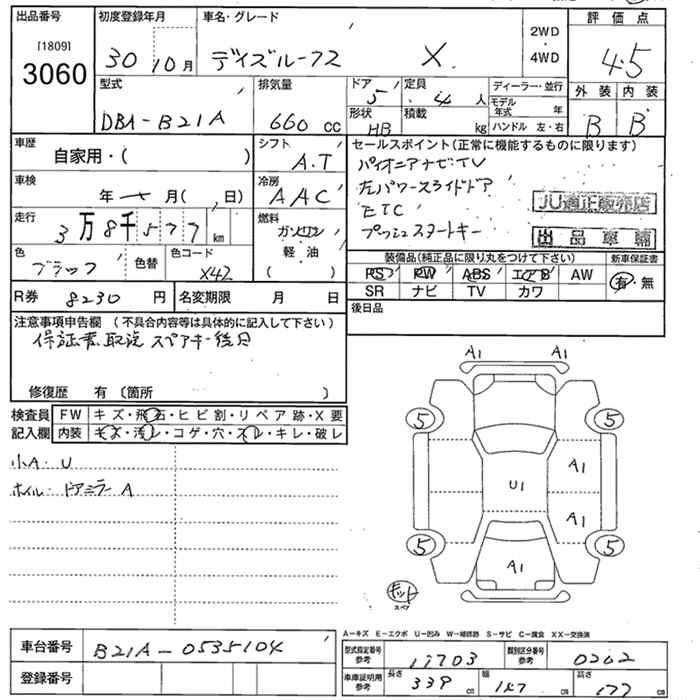 出品番号 初度登録年月 車名・グレード 2WD・4WD 評価点
[1809]
3060
30 10月 デイズルークス X. 4.5
型式 排気量 ドア 定員 ディーラー・並行 外装 内装
DBA-B21A 660cc 5 4人 モデル年式 年
形状 HB 積載 kg ハンドル 左・右 B B
車歴 自家用・( ) シフト A.T セールスポイント(正常に機能するものに限ります)
パイオニアナビTV
車検 年 月( 日) 冷房 AAC 左パワースライドドア
ETC
JU適正販売店
走行 3万8千577km 燃料 ガソリン プッシュスタートキー
軽・油
( )
出品車輌
色 ブラック 色替 色コード X42
装備品(純正品に限り丸をつけて下さい) 新車保証書
PS PW ABS エアB AW 有・無
SR ナビ TV カワ
R券 8230円 名変期限 月 日 後日品
注意事項申告欄(不具合内容等は具体的に記入して下さい)
保証書、取説 スペアキー後日
修復歴 有〔箇所 〕
検査員記入欄 FW キズ・飛石・ヒビ割・リペア跡・X要
内装 キズ・汚レ・コゲ・穴・スレ・キレ・破レ
小A・U
ホイル・ドアミラーA
A1 A1
5 5
A1
U1
A1
5 5
A1
キット
スペア
A1
A-キズ E-エクボ U-凹み W-補修跡 S-サビ C-腐食 XX-交換済
車台番号 B21A-0535104
型式指定番号 参考 17703 類別区分番号 参考 0202
登録番号
車庫証明用 参考 長さ 339cm 幅 147cm 高さ 177cm